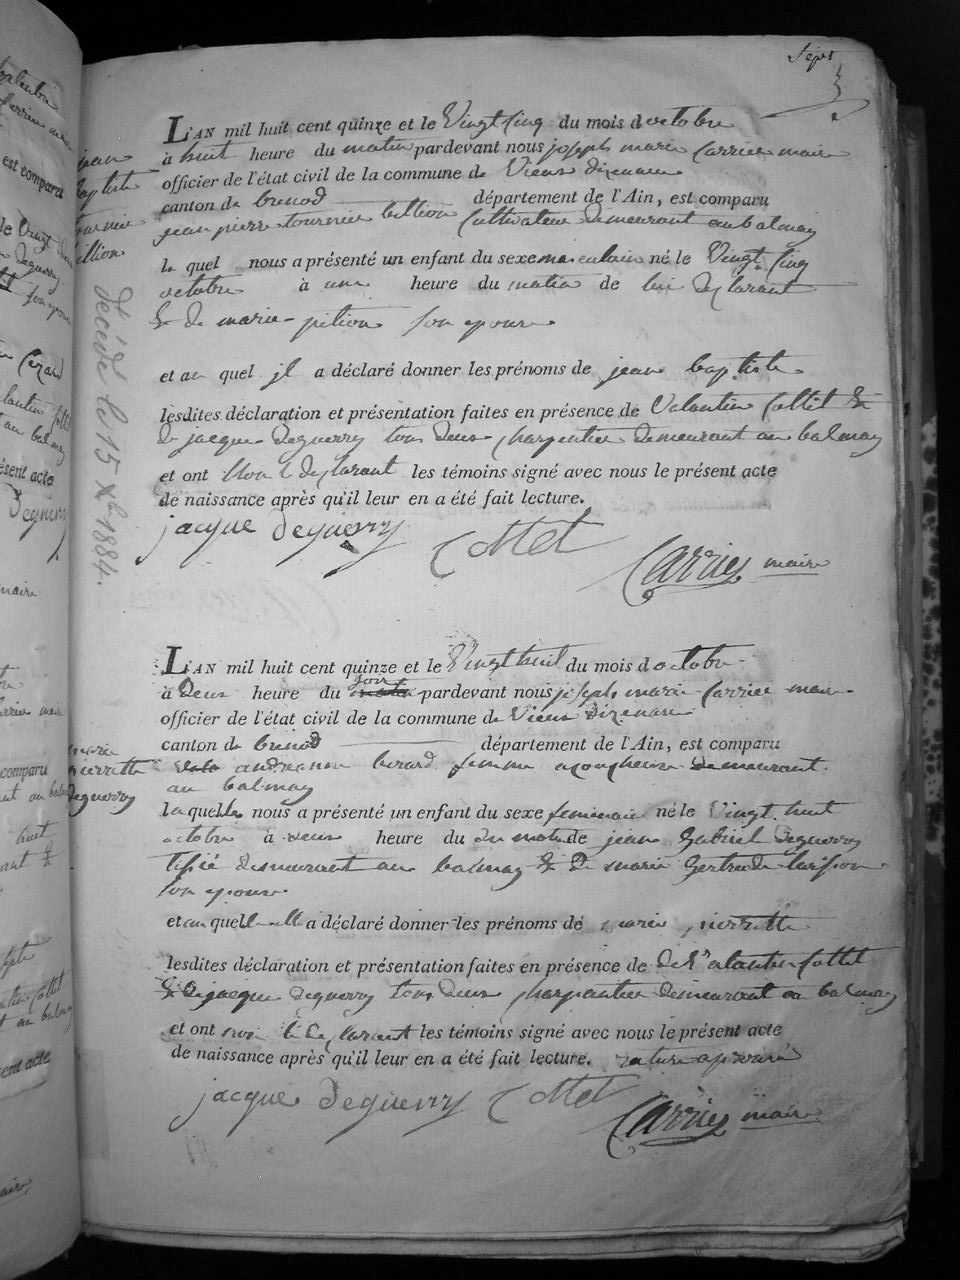 Sept
L'AN mil huit cent quinze et le Vingt Cinq du mois d octobre
à huit heure du matin pardevant nous joseph marie Carrier maire
officier de l'état civil de la commune de Vieux dizenave
canton de brenod département de l'Ain, est comparu
jean pierre tournier billion Cultivateur demeurant au balmay
le quel nous a présenté un enfant du sexe masculain né le Vingt Cinq
octobre à une heure du matin de lui déclarant
& de marie pition son epouse
et au quel jl a déclaré donner les prénoms de jean baptiste
lesdites déclaration et présentation faites en présence de Valantin Collet &
de jacque deguerry tous deux charpentier demeurant au balmay
et ont Non le déclarant les témoins signé avec nous le présent acte
de naissance après qu'il leur en a été fait lecture.
jacque deguerry Collet Carrier maire
jean
baptiste
tournier
billion
décédé le 15 Xbre 1884.
L'AN mil huit cent quinze et le Vingt huit du mois d octobre
à Deux heure du soir pardevant nous joseph marie Carrier maire
officier de l'état civil de la commune de Vieux dizenave
canton de brenod département de l'Ain, est comparu
andreanne berard femme acoucheuse demeurant
au balmay
laquelle nous a présenté un enfant du sexe feminain né le Vingt huit
octobre à deux heure du du matin de jean Gabriel deguerry
tissié demeurant au balmay & de marie Gertrude
son epouse
et au quel elle a déclaré donner les prénoms de marie pierrette
lesdites déclaration et présentation faites en présence de de Sr Valantin Collet
& de jacque deguerry tous deux charpentier demeurant au balmay
et ont non le déclarant les témoins signé avec nous le présent acte
de naissance après qu'il leur en a été fait lecture. rature aprouvé
jacque deguerry Collet Carrier maire
marie
pierrette
deguerry